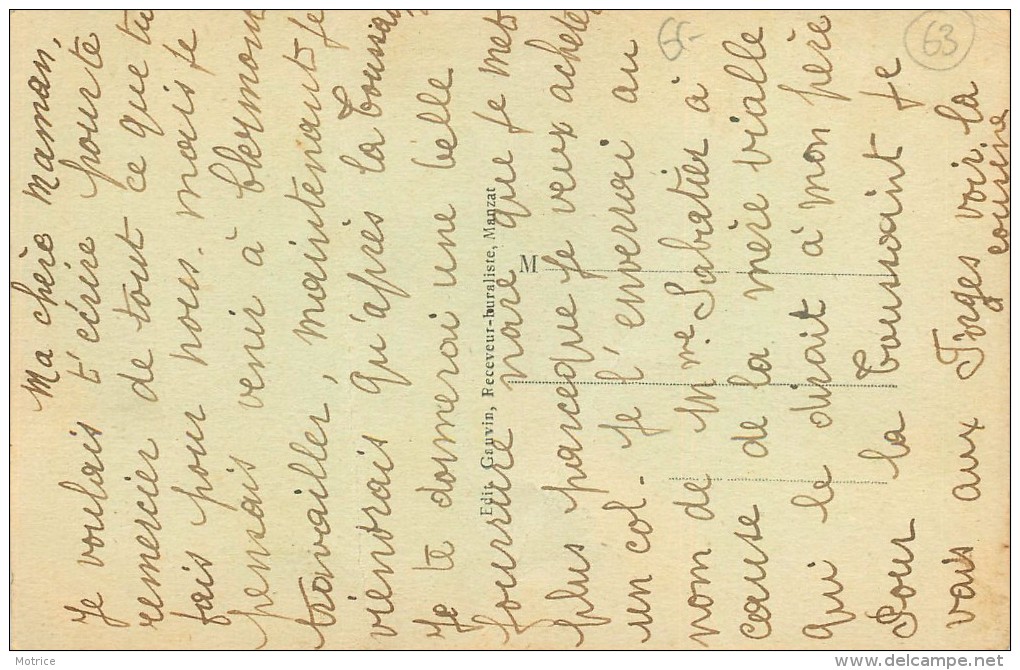 Ma chère maman,
Je voulais t'écrire pour te
remercier de tout ce que tu
fais pour nous. mais je
pensais venir à Clermont
travailler, maintenant je
viendrais qu'après la Toussaint
Je te donnerai une belle
fourrure que je met
plus parceque je veux acheter
un col. Je l'enverrai au
nom de Mme Sabatier à
cause de la mère vialle
qui le dirait à mon père
Pour la Toussaint je
vais aux voir la
cousine
Edit. Gauvin, Receveur-buraliste, Manzat
M
65-
63
Motrice
delcampe.net